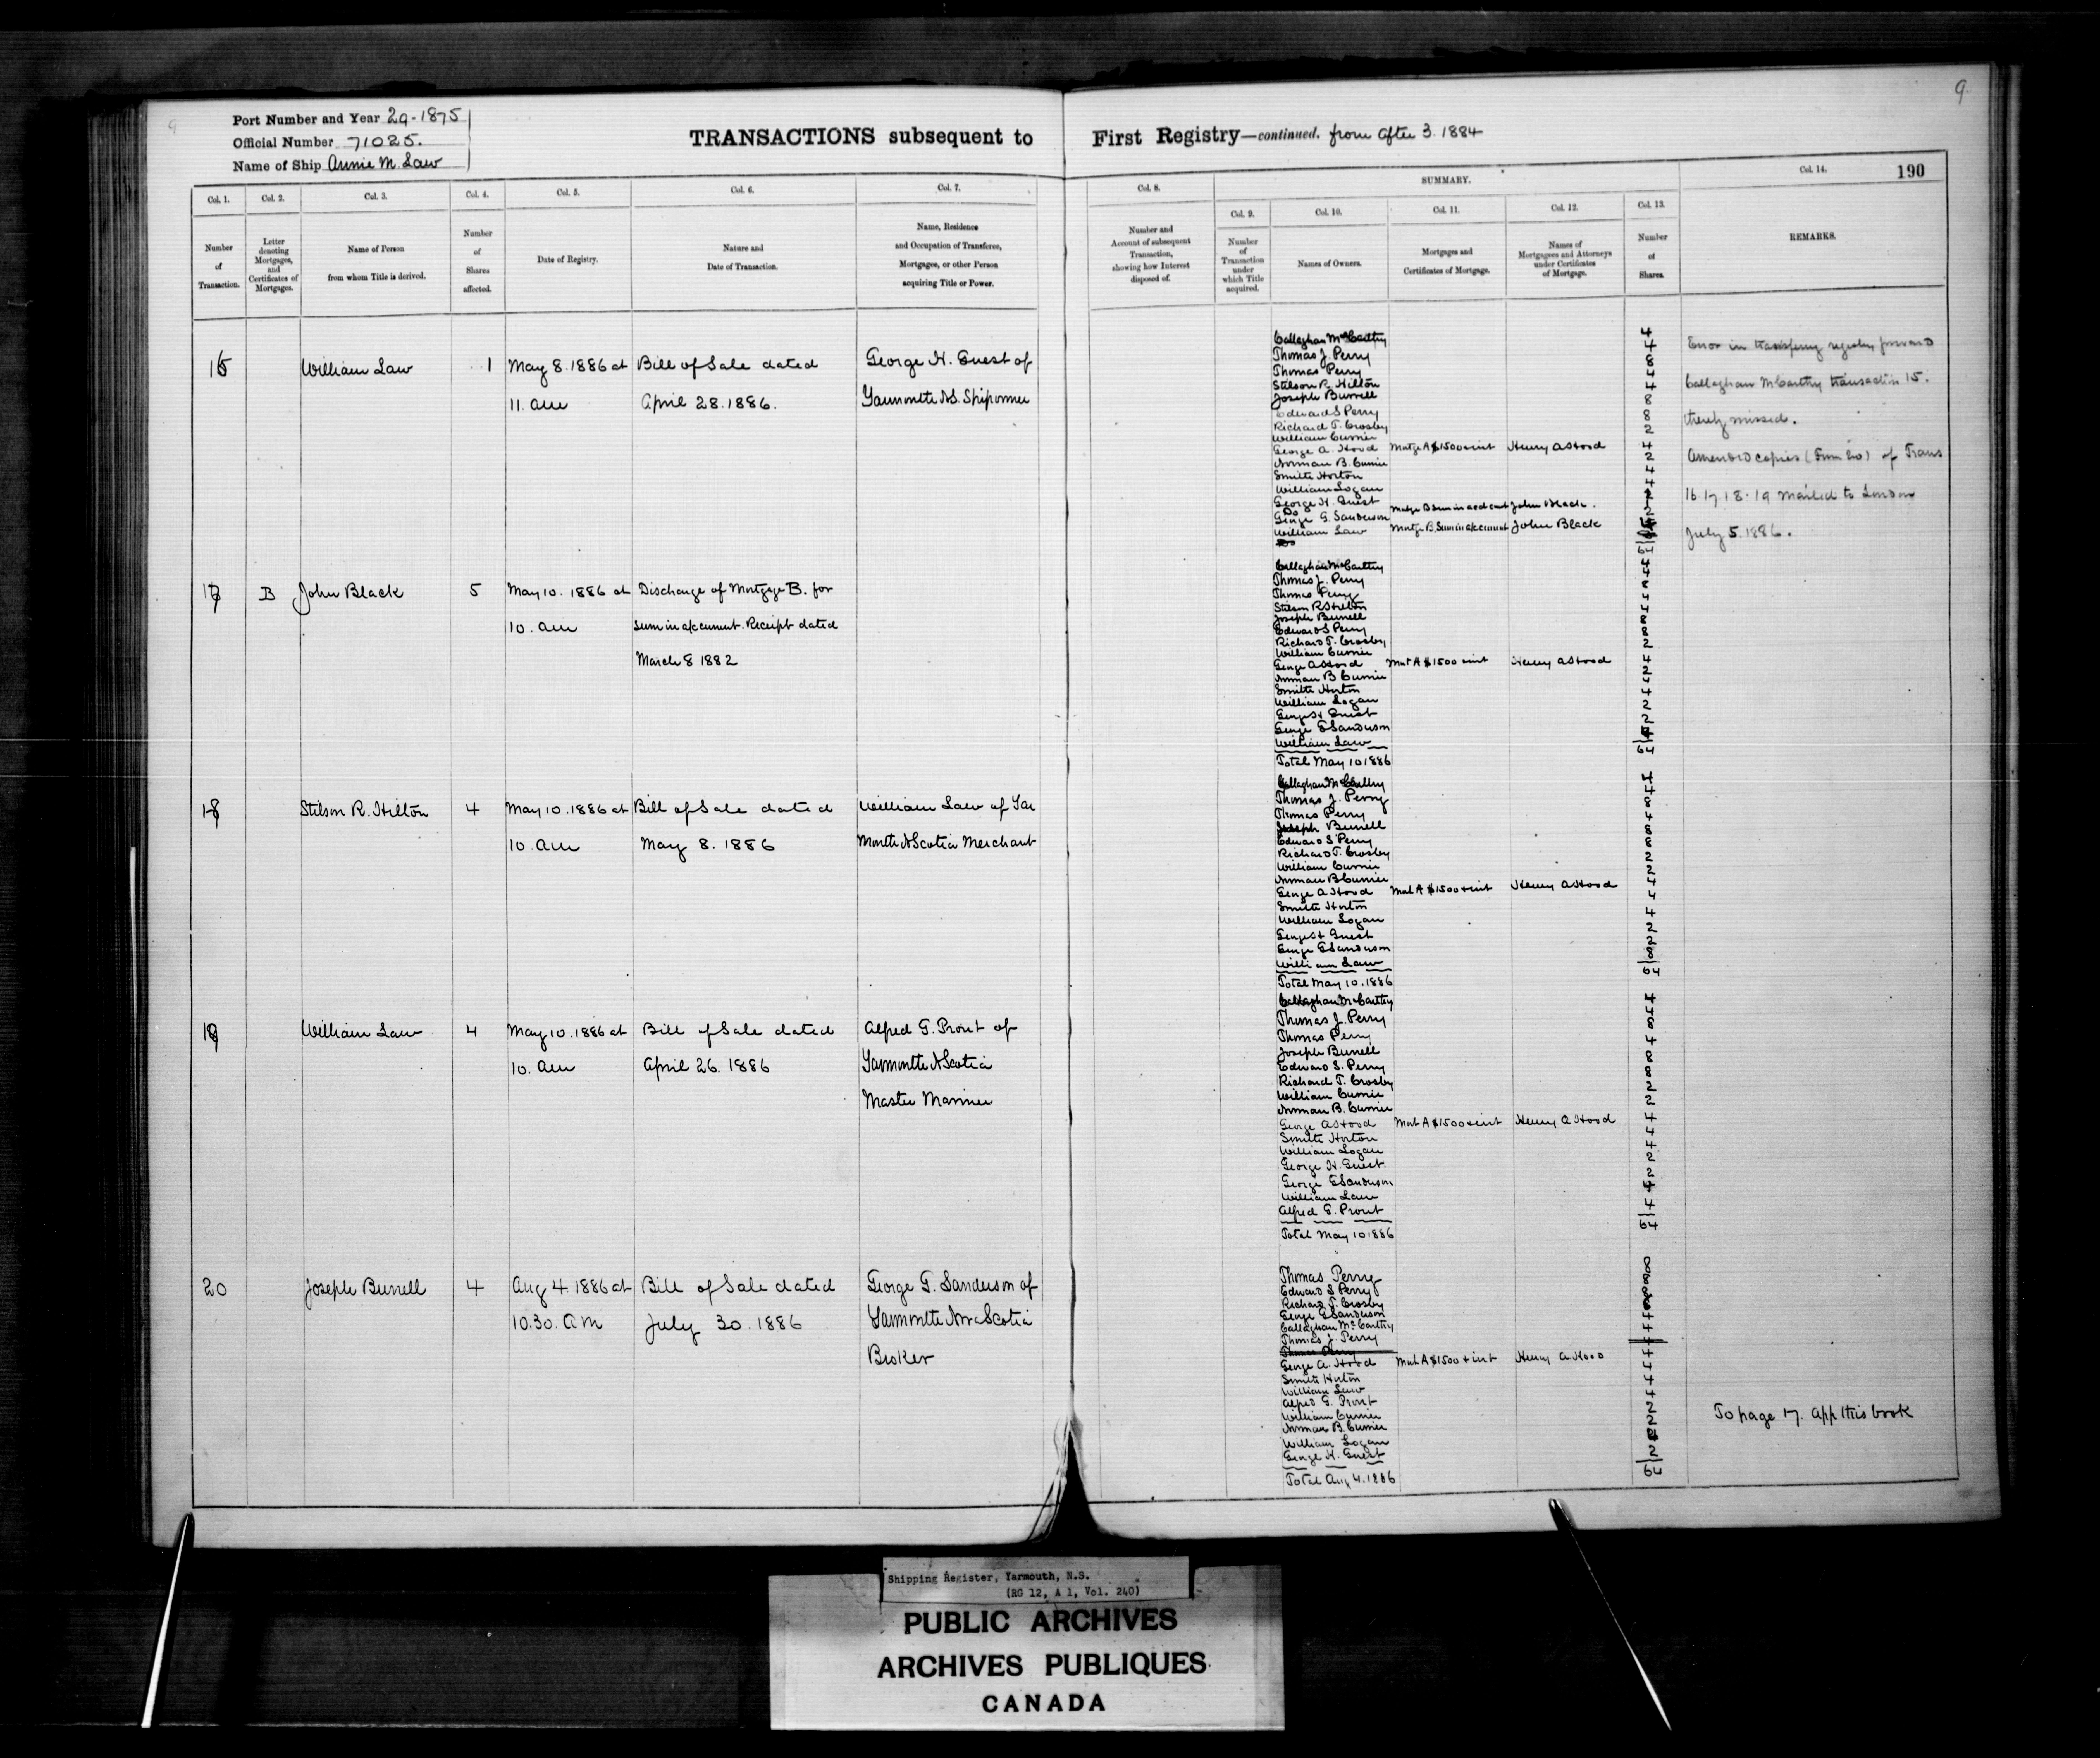 9
9
Port Number and Year 29-1875
Official Number 71025.
Name of Ship Annie M. Law
TRANSACTIONS subsequent to
First Registry—continued. from after 3. 1884
190
Col. 1.
Number
of
Transaction.
Col. 2.
Letter
denoting
Mortgages,
and
Certificates of
Mortgages.
Col. 3.
Name of Person
from whom Title is derived.
Col. 4.
Number
of
Shares
affected.
Col. 5.
Date of Registry.
Col. 6.
Nature and
Date of Transaction.
Col. 7.
Name, Residence
and Occupation of Transferee,
Mortgagee, or other Person
acquiring Title or Power.
Col. 8.
Number and
Account of subsequent
Transaction,
showing how Interest
disposed of.
SUMMARY.
Col. 9.
Number
of
Transaction
under
which Title
acquired.
Col. 10.
Names of Owners.
Col. 11.
Mortgages and
Certificates of Mortgage.
Col. 12.
Names of
Mortgagees and Attorneys
under Certificates
of Mortgage.
Col. 13.
Number
of
Shares.
Col. 14.
REMARKS.
16 William Law 1 May 8. 1886 at Bill of Sale dated George H. Guest of
11. am April 28. 1886. Yarmouth N.S. Shipowner
Callaghan McCarthy 4
Thomas J. Perry 4
Thomas Perry 8
Stilson R. Hilton 4
Joseph Burrell 4
Edward S Perry 8
Richard T. Crosby 8
William Currier 2
George A. Hood Mortge A $1500 + int Henry A Hood 4
Norman B. Currier 2
Smith Horton 4
William Logan 4
George H. Guest
Do John Black.
George G. Sanderson 2
William Law Mortge B. Sum in a/c current John Black
64
Error in transferring registry forward
Callaghan McCarthy transaction 15.
thereby missed.
Amended copies (Form 20) of Trans
16 17 18 - 19 mailed to London
July 5. 1886.
17 B John Black 5 May 10. 1886 at Discharge of Mortgage B. for
10. am sum in a/c current. Receipt dated
March 8 1882
Callaghan McCarthy 4
Thomas J. Perry 4
Thomas Perry 8
Stilson R Hilton 4
Joseph Burrell 4
Edward S Perry 8
Richard T. Crosby 8
William Currier 2
George A Hood Mort A $1500 + int Henry A Hood 4
Norman B Currier 2
Smith Horton 4
William Logan 4
George H Guest 2
George G Sanderson 2
William Law 4
64
Total May 10 1886
18 Stilson R. Hilton 4 May 10. 1886 at Bill of Sale dated William Law of Yar
10. am May 8. 1886 mouth N Scotia Merchant
Callaghan McCarthy 4
Thomas J. Perry 4
Thomas Perry 8
Joseph Burrell 4
Edward S Perry 8
Richard T. Crosby 8
William Currier 2
Norman B Currier 2
George A Hood Mort A $1500 + int Henry A Hood 4
Smith Horton 4
William Logan 4
George H Guest 2
George G Sanderson 2
William Law 8
64
Total May 10. 1886
19 William Law 4 May 10. 1886 at Bill of Sale dated Alfred G. Prout of
10. am April 26. 1886 Yarmouth N Scotia
Master Mariner
Callaghan McCarthy 4
Thomas J. Perry 4
Thomas Perry 8
Joseph Burrell 4
Edward S. Perry 8
Richard T. Crosby 8
William Currier 2
Norman B. Currier 2
George A Hood Mort A $1500 + int Henry A Hood 4
Smith Horton 4
William Logan 4
George H. Guest. 2
George G Sanderson 2
William Law 4
Alfred G. Prout 4
64
Total May 10 1886
20 Joseph Burrell 4 Aug 4. 1886 at Bill of Sale dated George G. Sanderson of
10.30. am July 30. 1886 Yarmouth Nova Scotia
Broker
Thomas Perry 8
Edward S Perry 8
Richard T. Crosby 8
George G Sanderson
Callaghan McCarthy 4
Thomas J. Perry 4
Thomas Perry
George A. Hood Mort A $1500 + int Henry A. Hood 4
Smith Horton 4
William Law 4
Alfred G. Prout 4
William Currier 2
Norman B. Currier 2
William Logan 4
George H. Guest 2
64
Total Aug 4. 1886
To page 17. App this book
Shipping Register, Yarmouth, N.S.
(RG 12, A 1, Vol. 240)
PUBLIC ARCHIVES
ARCHIVES PUBLIQUES
CANADA